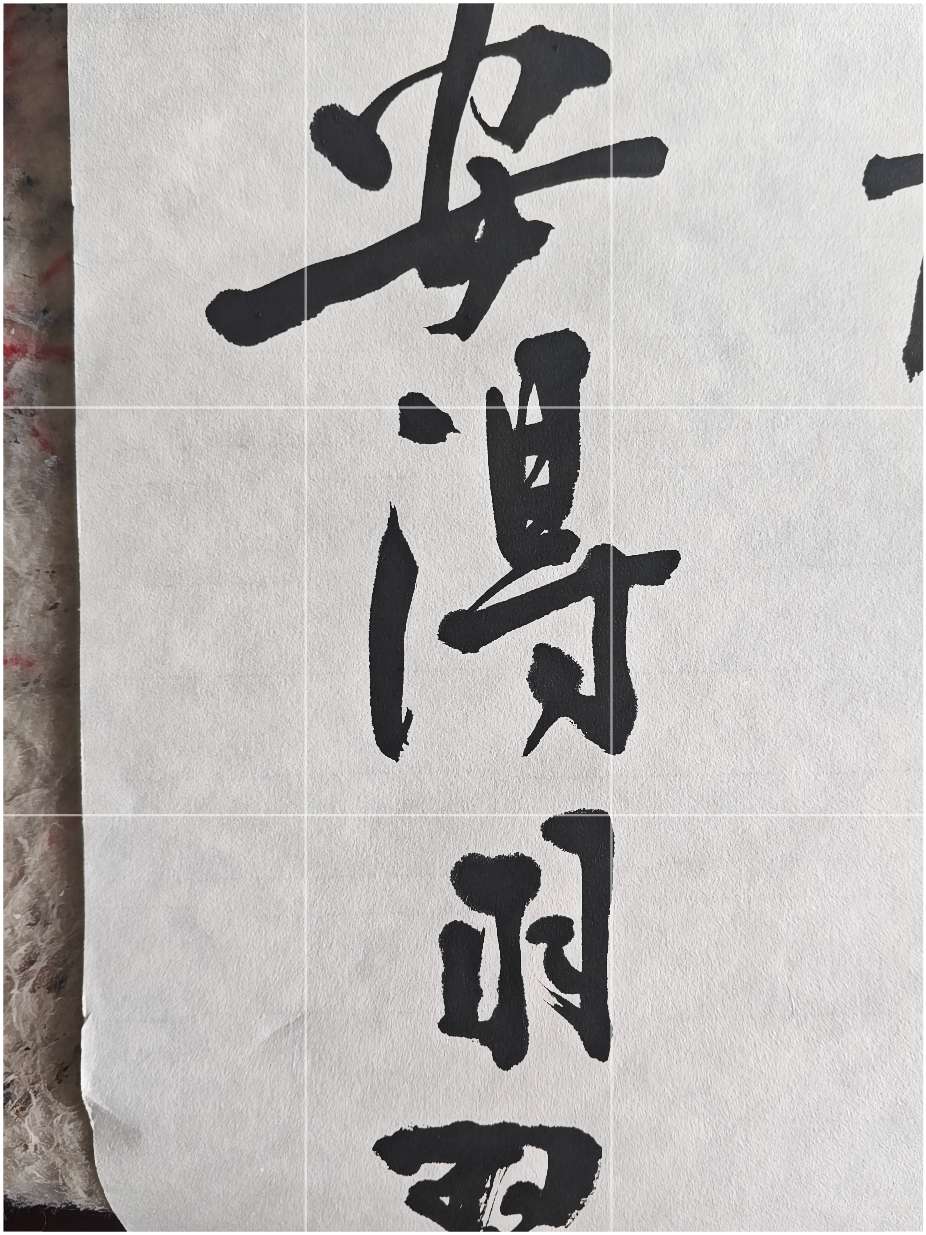 安得羽